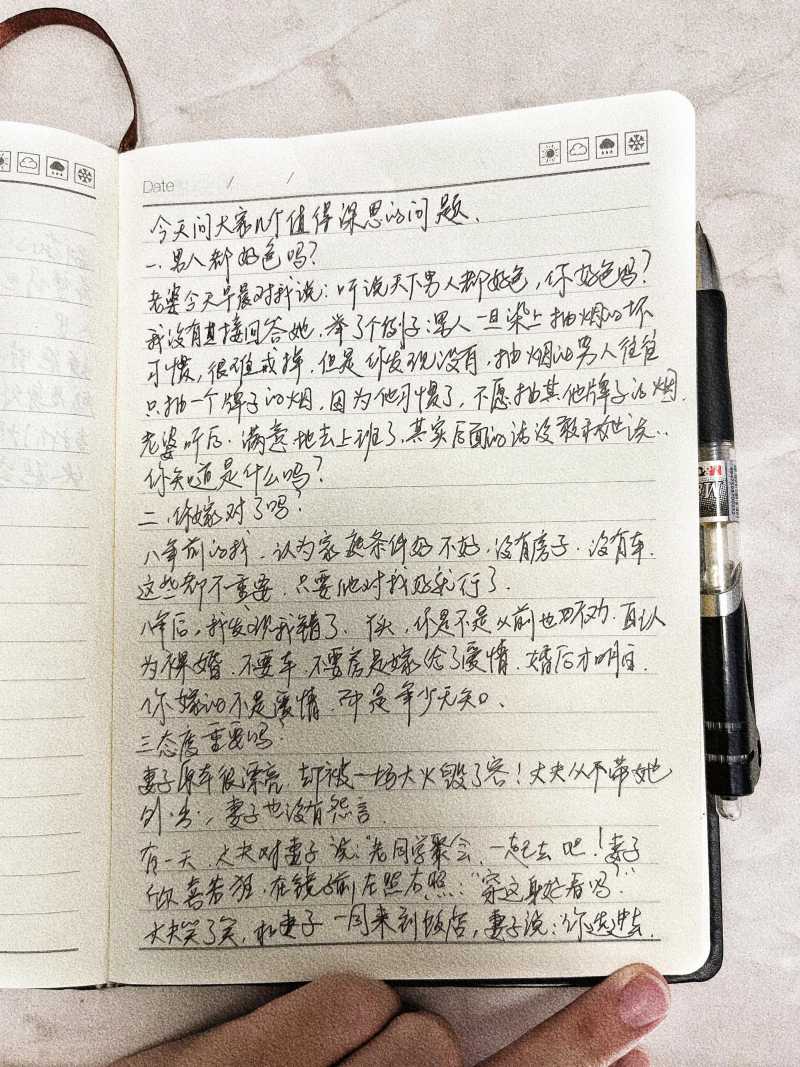 Date / /
今天问大家几个值得深思的问题.
一.男人都好色吗?
老婆今天早晨对我说:听说天下男人都好色,你好色吗?
我没有直接回答她.举了个例子:男人一旦染上抽烟的坏
习惯,很难戒掉.但是你发现没有,抽烟的男人往往
只抽一个牌子的烟.因为他习惯了,不愿抽其他牌子的烟.
老婆听后.满意地去上班了.其实后面的话没敢和她说..
你知道是什么吗?
二.你嫁对了吗?
八年前的我.认为家庭条件好不好.没有房子.没有车.
这些都不重要.只要他对我好就行了.
八年后,我发现我错了.你是不是以前也.直认
为裸婚.不要车.不要房是嫁给了爱情.婚后才明白.
你嫁的不是爱情.而是年少无知。
三态度重要吗?
妻子原本很漂亮.却被一场大火毁了容!丈夫从不带她
外出,妻子也没有怨言.
有一天.丈夫对妻子说:"老同学聚会,一起去吧!妻子
欣喜若狂.在镜子前左照右照:"穿这身好看吗?"
丈夫笑了笑,和妻子一同来到饭店,妻子说:你先进去.